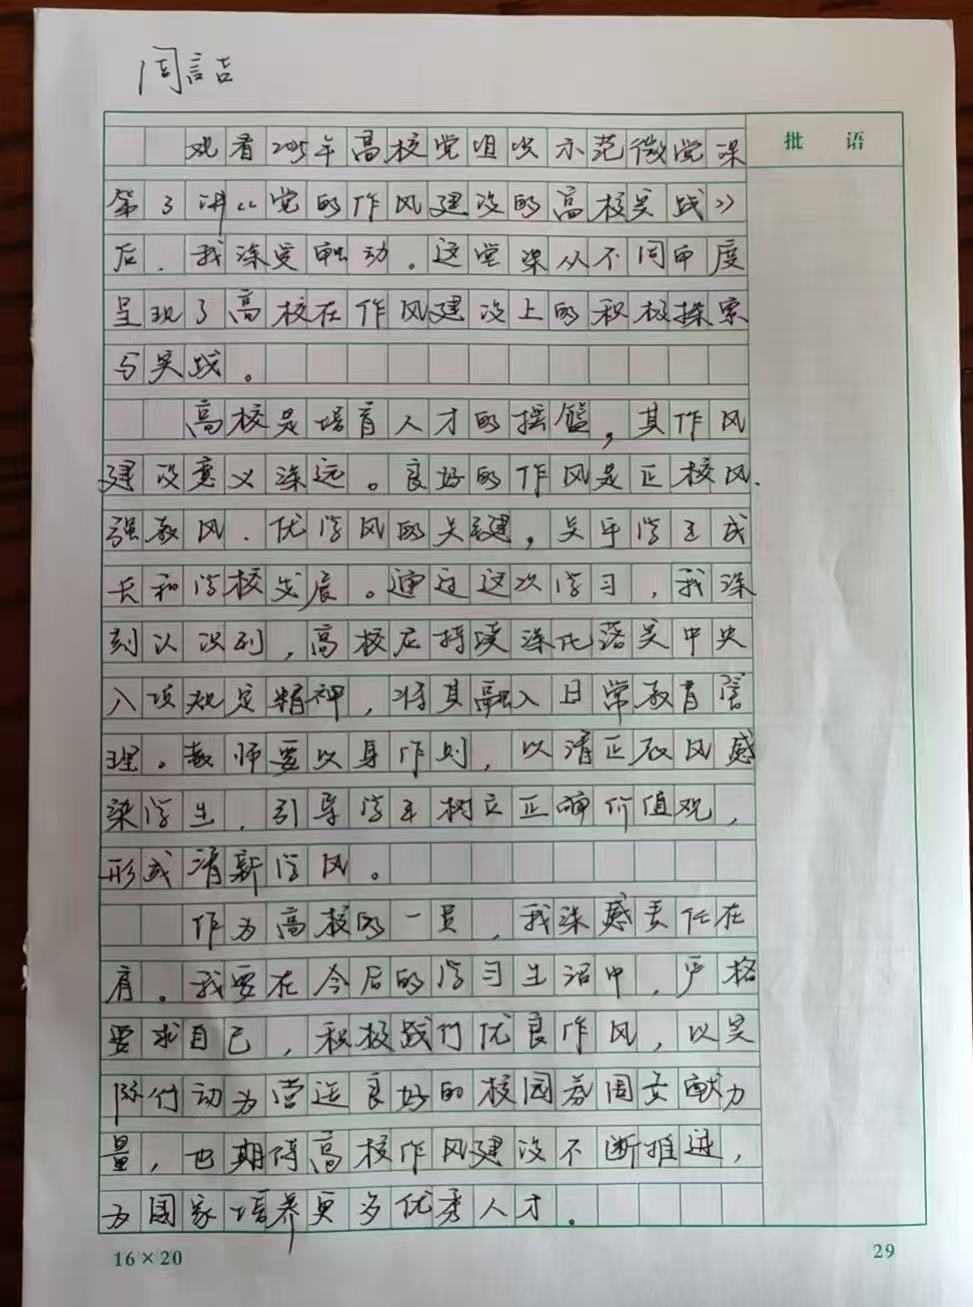 周喆
批 语
观看2025年高校党组织示范微党课
第3讲《党的作风建设的高校实践》
后，我深受触动。这堂课从不同角度
呈现了高校在作风建设上的积极探索
与实践。
高校是培育人才的摇篮，其作风
建设意义深远。良好的作风是正校风、
强教风、优学风的关键，关乎学生成
长和学校发展。通过这次学习，我深
刻认识到，高校应持续深化落实中央
八项规定精神，将其融入日常教育管
理。教师要以身作则，以清正教风感
染学生，引导学生树立正确价值观，
形成清新学风。
作为高校的一员，我深感责任在
肩。我要在今后的学习生活中，严格
要求自己，积极践行优良作风，以实
际行动为营造良好的校园氛围贡献力
量，也期待高校作风建设不断推进，
为国家培养更多优秀人才。
16×20
29